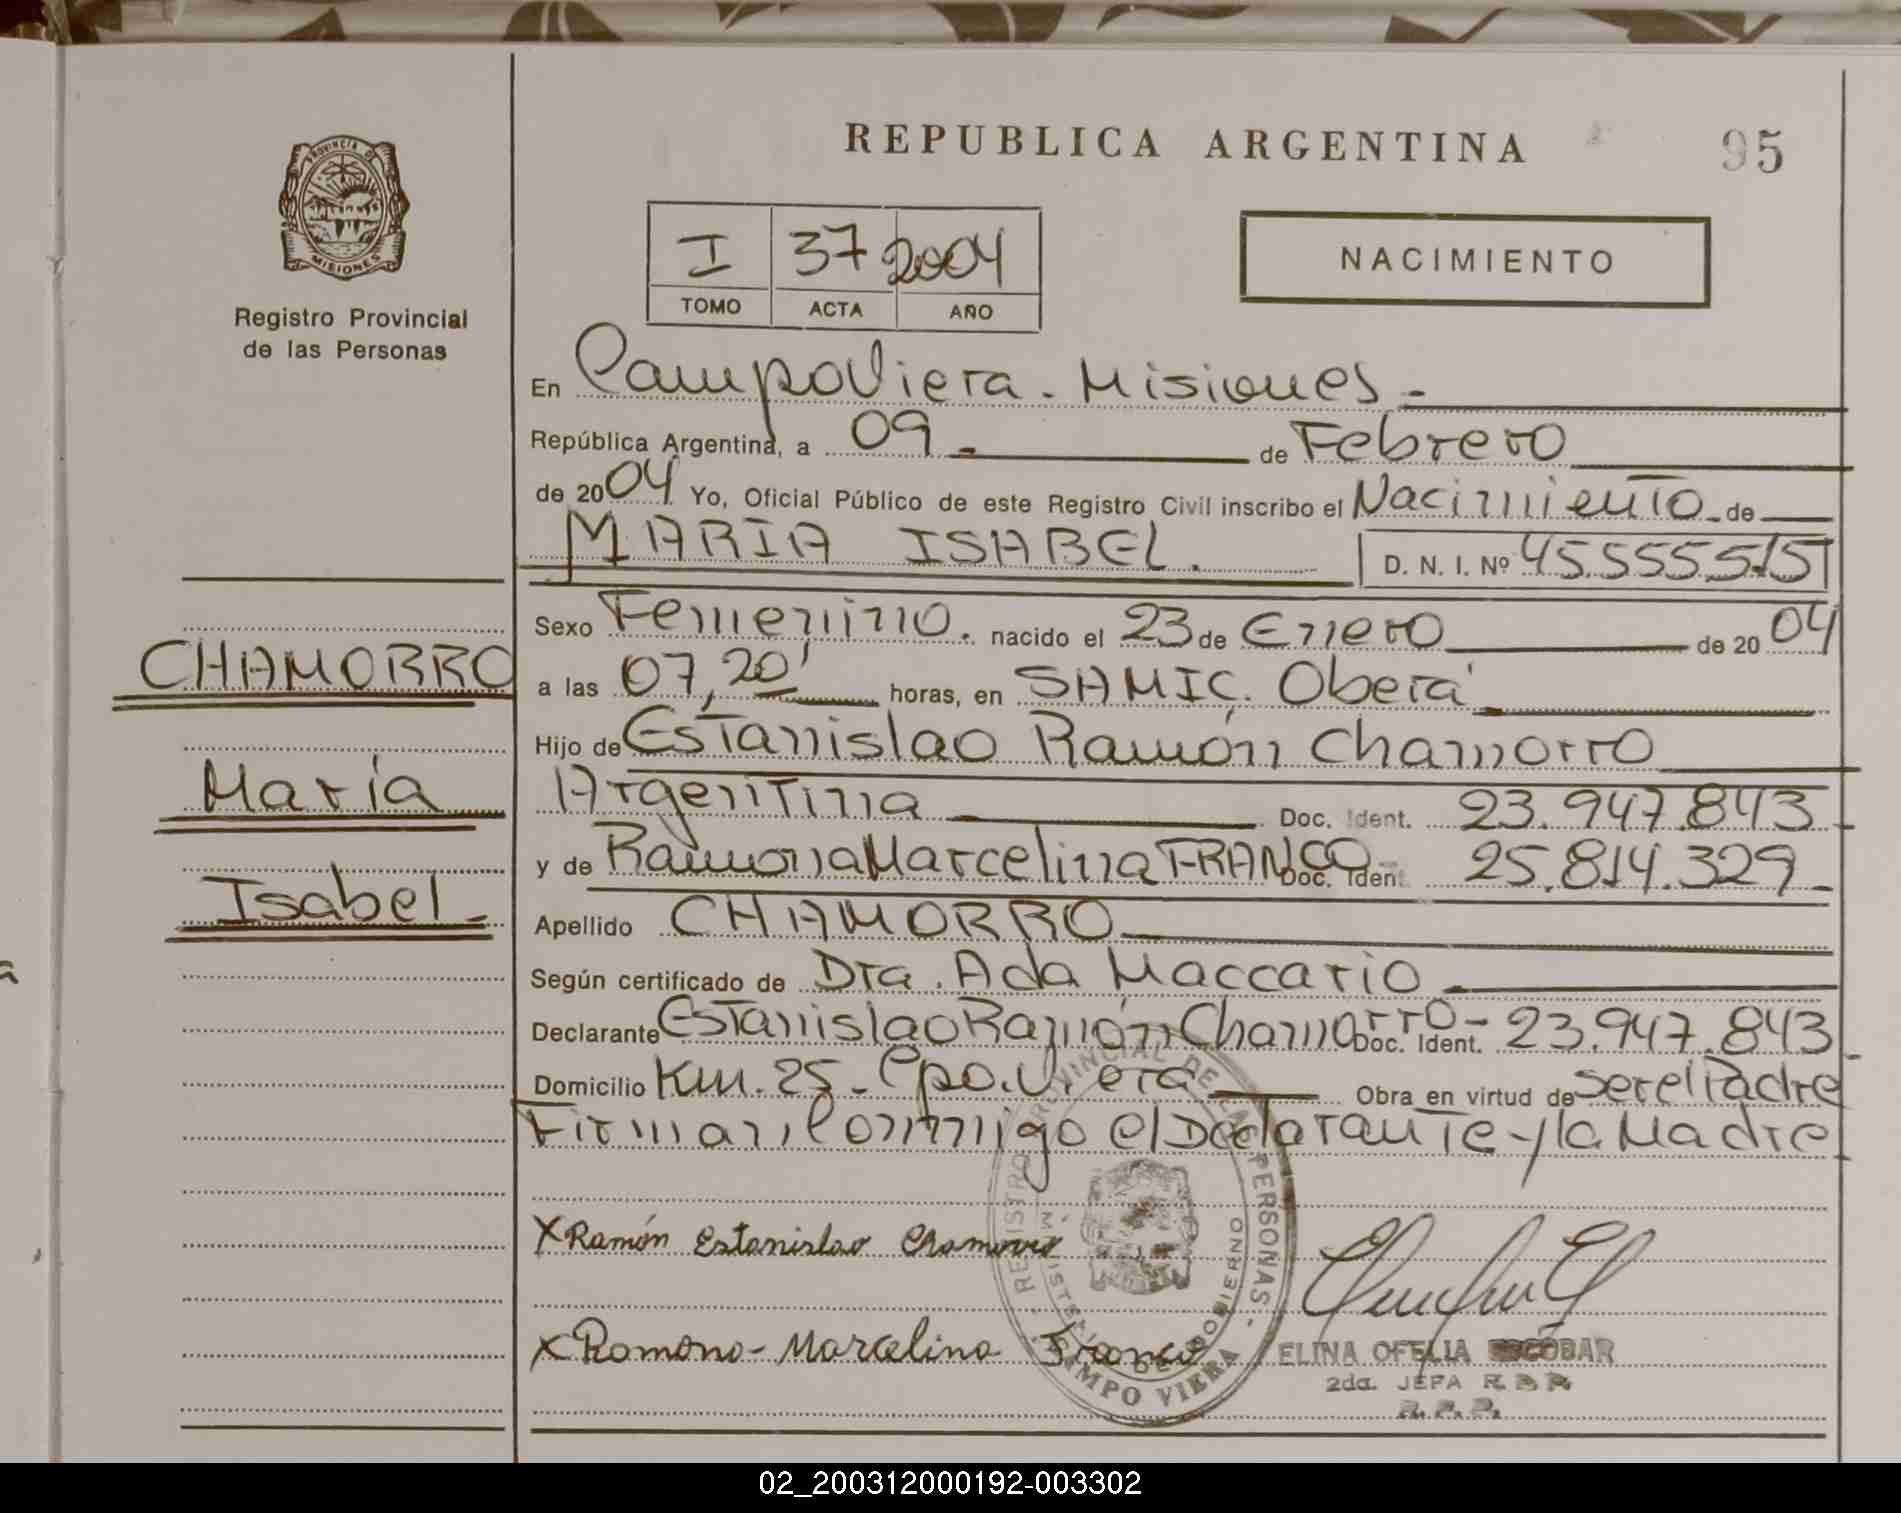 REPUBLICA ARGENTINA
95
PROVINCIA DE
MISIONES
Registro Provincial
de las Personas
I 37 2004
TOMO ACTA AÑO
NACIMIENTO
En Campo Viera - Misiones -
República Argentina, a 09 - de Febrero
de 2004 Yo, Oficial Público de este Registro Civil inscribo el Nacimiento de
MARIA ISABEL. D. N. I. Nº 45.555.515
Sexo Femenino. nacido el 23 de Enero de 2004
CHAMORRO
a las 07,20' horas, en SAMIC. Oberá
Hijo de Estanislao Ramón Chamorro
María
Argentina Doc. Ident. 23.947.843
y de Ramona Marcelina FRANCO - Doc. Ident. 25.814.329 -
Isabel -
Apellido CHAMORRO
Según certificado de Dra. Ada Maccario
Declarante Estanislao Ramón Chamorro - Doc. Ident. 23.947.843
Domicilio Km. 25 - Cpo. Viera Obra en virtud de ser el Padre
Firman Conmigo el Declarante y la Madre
X Ramón Estanislao Chamorro
X Romona - Marcelina Franco
REGISTRO PROVINCIAL DE LAS PERSONAS
GOBIERNO
CAMPO VIERA
ELINA OFELIA ESCOBAR
2da. JEFA
02_200312000192-003302